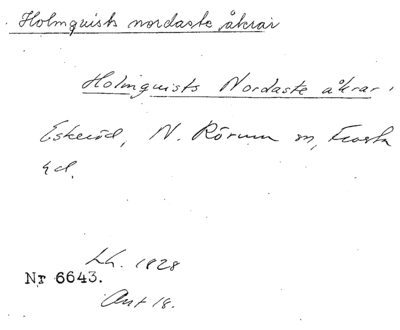 Holmquists nordaste åkrar
Holmquists Nordaste åkrar.
Eskeröd, N. Rörum sn, Frosta
hd.
Lh. 1828
Nr 6643.
Akt 18.